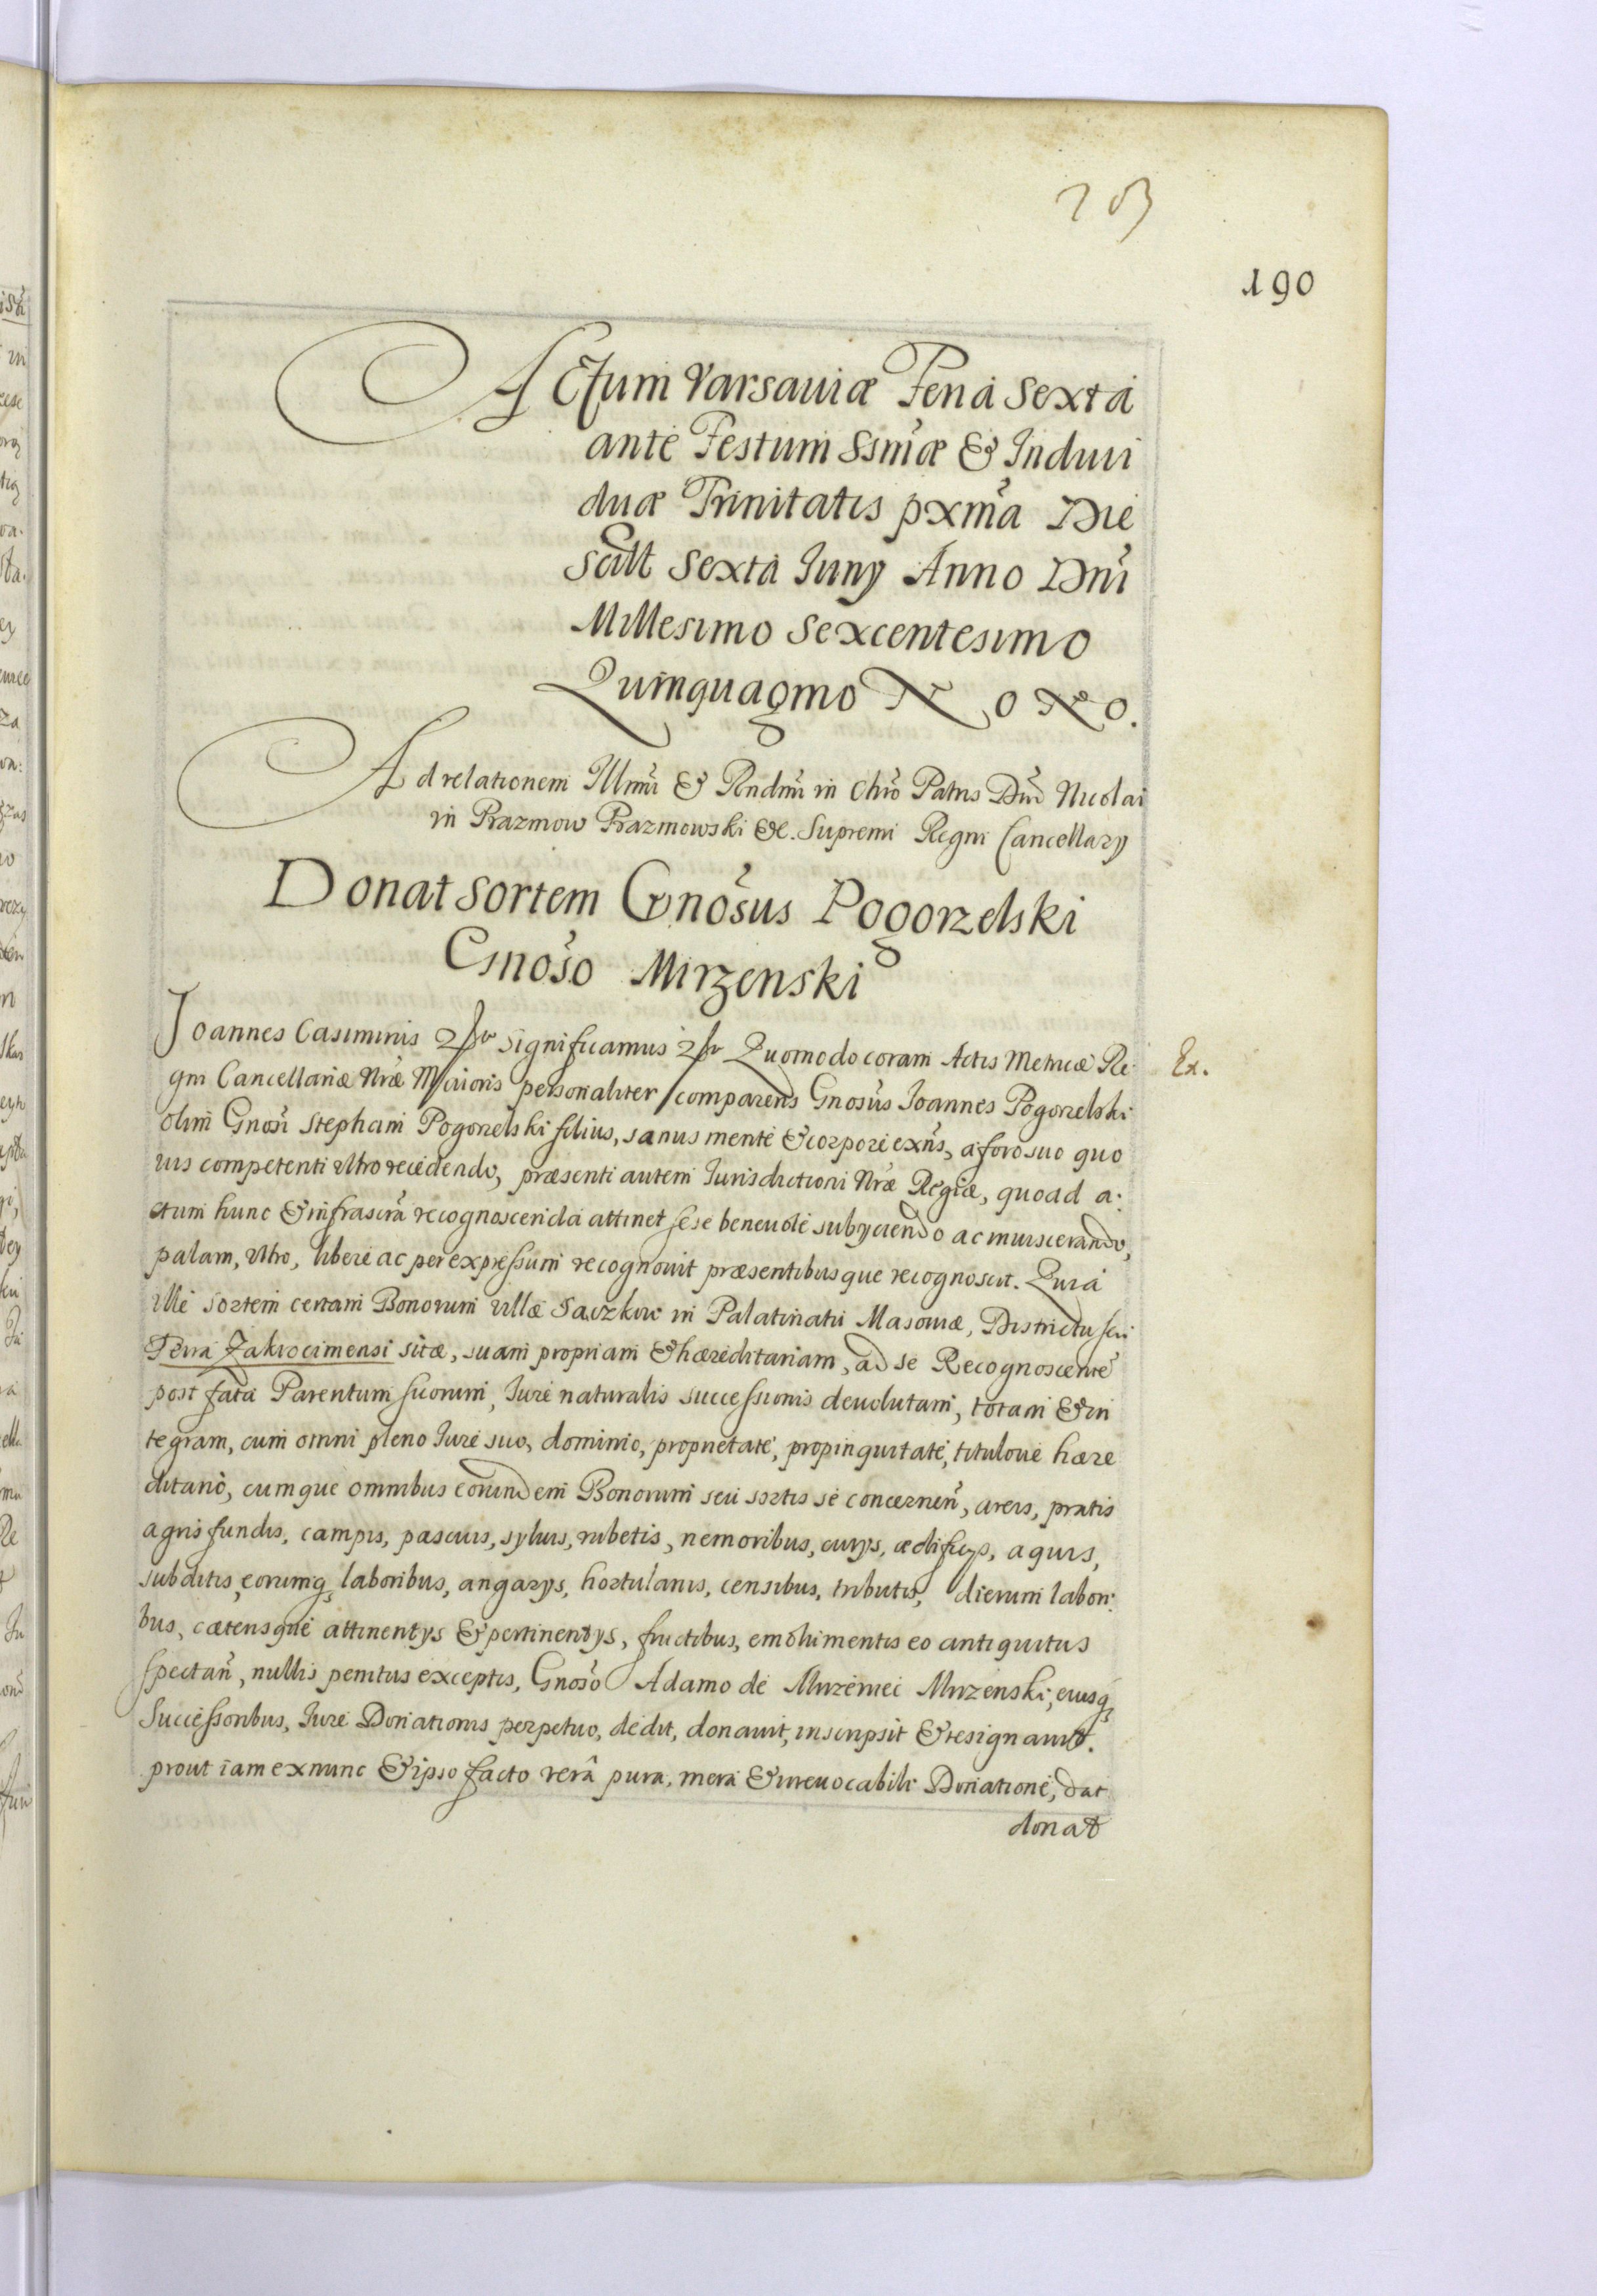 203
190
Actum Varsaviæ Feria Sexta
ante Festum Ssmæ & Indivi
duæ Trinitatis pxma Die
scilt Sexta Iuny Anno Dni
Millesimo Sexcentesimo
Quinquagmo Nono.
Ad relationem Illmi & Rndmi in Chro Patris Dni Nicolai
in Prazmow Prazmowski &c. Supremi Regni Cancellary
Donat sortem Gnosus Pogorzelski
Gnoso Mirzenski
Joannes Casimirus Significamus Quomodo coram Actis Metricæ Re
Ex.
gni Cancellariæ Nræ Maioris personaliter comparens Gnosus Joannes Pogorzelski
olim Gnosi Stephani Pogorzelski filius, sanus mente & corpore exns, a foro suo quo
vis competenti ultro recedendo, præsenti autem Iurisdictioni Nræ Regiæ, quoad a:
ctum hunc & infrascra recognoscenda attinet sese benevole subyciendo ac inviscerando,
palam, ultro, libere ac per expressum recognovit præsentibusque recognoscit. Quia
ille sortem certam Bonorum villæ in Palatinatu Masoviæ, Districtu seu
Terra Zakrocimensi sitæ, suam propriam & hæreditariam, ad se Recognoscente
post fata Parentum suorum, Iure naturalis successionis devolutam, totam & in
tegram, cum omni pleno Iure suo, dominio, proprietate, propinquitate, titulove hære
ditario, cumque omnibus eorundem Bonorum seu sortis se concernen, areis, pratis
agris fundis, campis, pascuis, sylvis, rubetis, nemoribus, curys, ædificys, aquis,
subditis, eorumq laboribus, angarys, hortulanis, censibus, tributis, dierum labori:
bus, cæterisque attinentys & pertinentys, fructibus, emolumentis eo antiquitus
spectan, nullis penitus exceptis, Gnoso Adamo de Mirzeniec Mirzenski, eiusq
Successoribus, Iure Donationis perpetuo, dedit, donavit, inscripsit & resignavit.
prout iam exnunc & ipso facto verâ pura, mera & irrevocabili Donatione, dat
donat